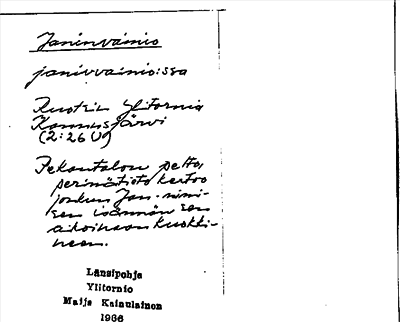 Janinvainio
janivvainio:ssa
Ruotsin Ylitornio
Kannusjärvi
(2:26 U)
Pekantalon pelto,
perimätieto kertoo
jonkun Jan-nimi-
sen isännän sen
aikoinaan kuokki-
neen.
Länsipohja
Ylitornio
Maija Kainulainen
1966